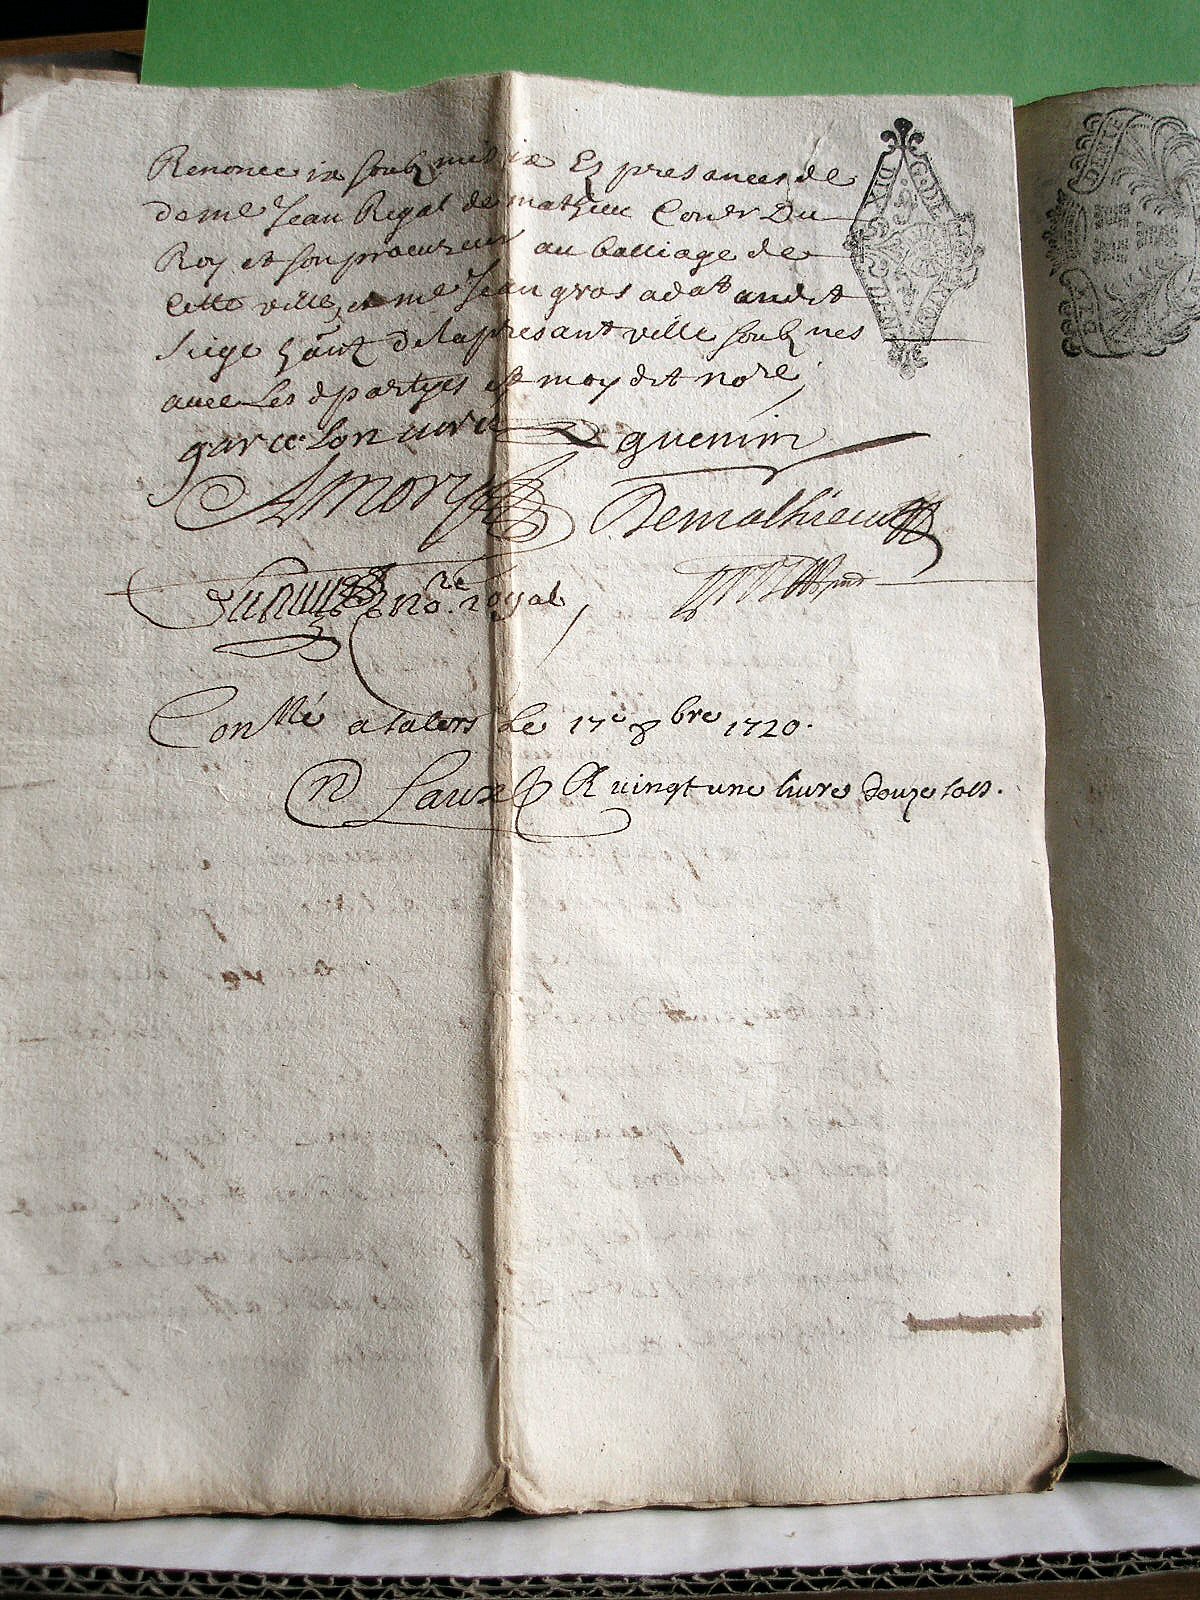 Renonce ix soubzmis ix Es presances de
de me Jean Rigal de mathieu Coner Du
Roy et son procureur au balliage de
cette ville et me Jean gros adat audit
siege hantz de la presant ville soubznes
avec Les d partyes et moy dit nore
garcelon cure guenin
Amory Demathieu
nore royal
Conllé a salers Le 17e 8bre 1720.
R vingt une livre douze sols.